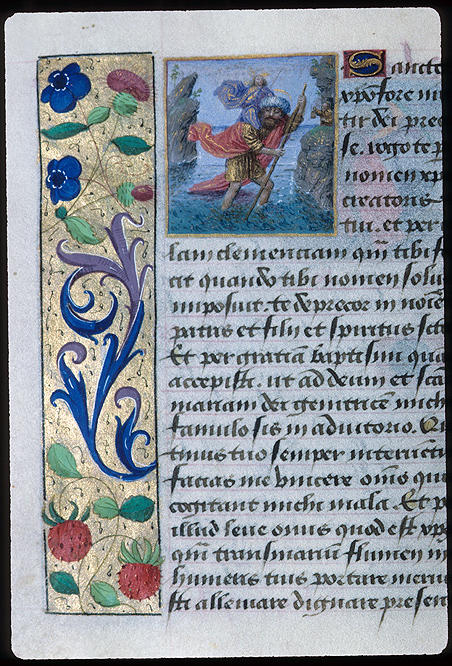 Sancte
xp̄ofore m
tir dei prec
se. rogo te p
nomen xp̄i
creatoris
tui. et per
lam clemenciam qm̄ tibi f
cit quando tibi nomen solu
imposuit. te deprecor in noīe
patris et filij et spiritus scī
Et per gratiā baptismi qua
accepisti. ut ad deum et scā
mariam dei genitricē mich
famulo sis in adiutorio. Qu
tinus tuo semper interuētu
facias me vincere om̄s qui
cogitant michi mala. Et p
illud leue onus quod est xp̄s
qm̄ transmarinū flumen in
humeris tuis portare merui
sti alleuiare dignare presen